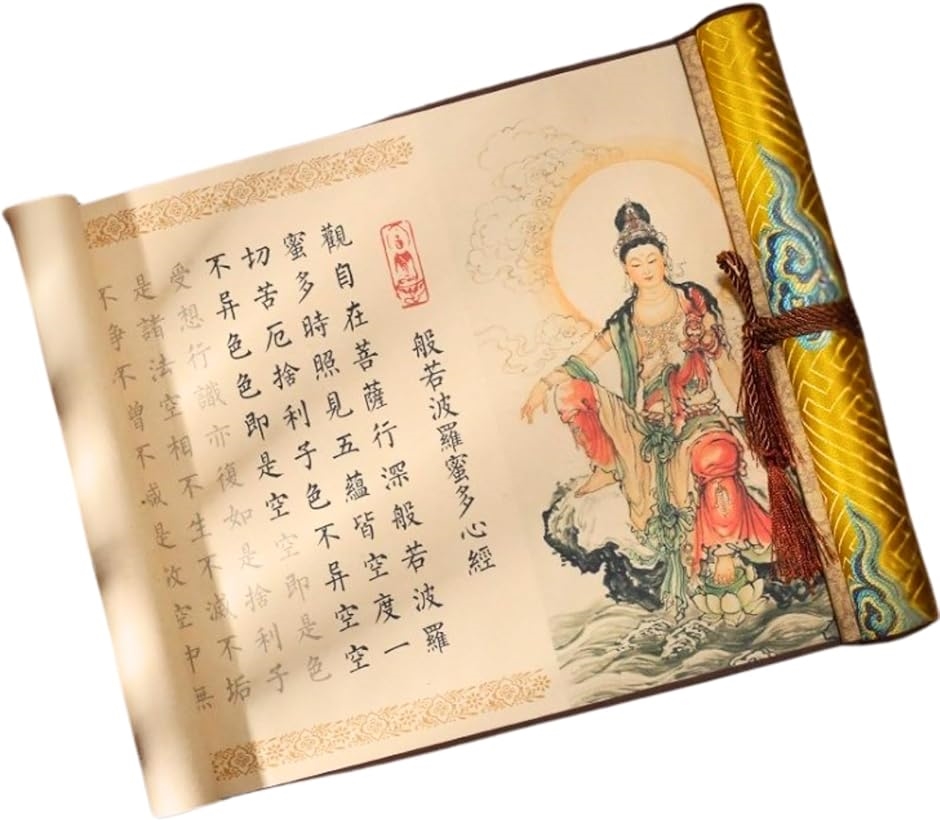 般若波羅蜜多心經
觀自在菩薩行深般若波羅
蜜多時照見五蘊皆空度一
切苦厄捨利子色不异空空
不异色色即是空空即是色
受想行識亦復如是捨利子
是諸法空相不生不滅不垢
不淨不增不減是故空中無